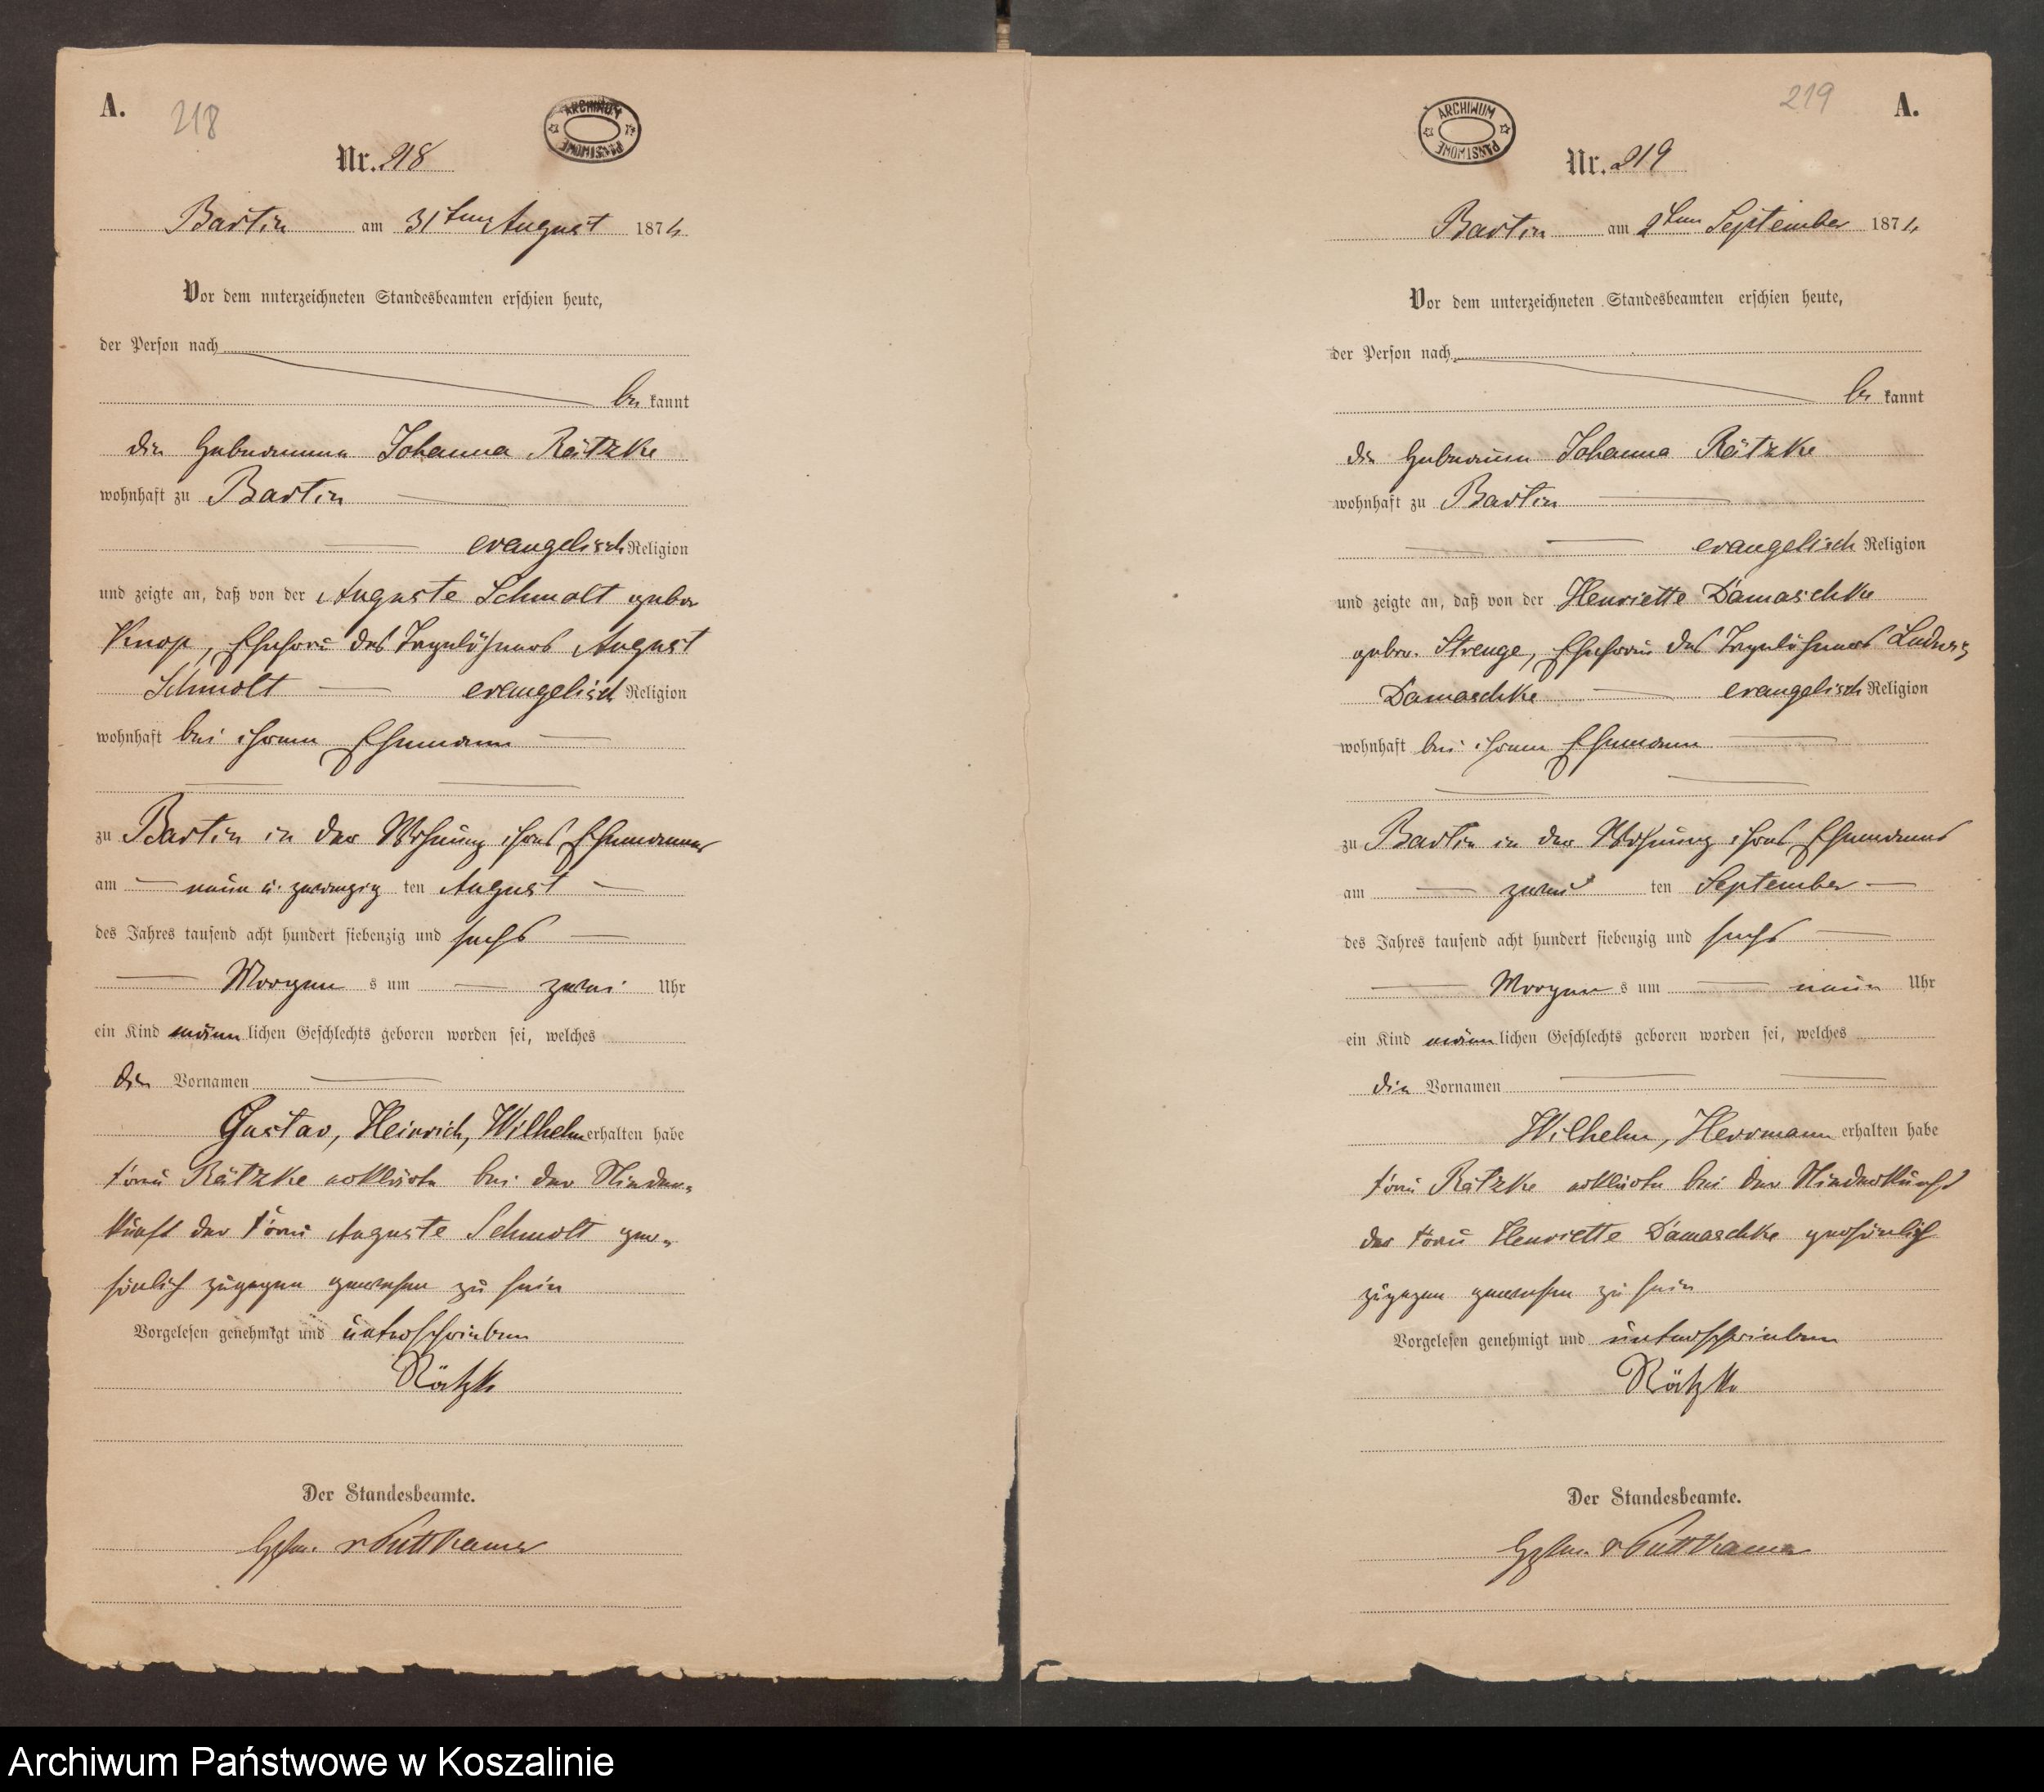 A.
218
ARCHIWUM PAŃSTWOWE
Nr. 218
Bartin am 31ten August 1876
Vor dem unterzeichneten Standesbeamten erschien heute,
der Person nach
be kannt
die Hebeamme Johanna Rätzke
wohnhaft zu Bartin
evangelisch Religion
und zeigte an, daß von der Auguste Schmolt gebor
Knop, Ehefrau des Tagelöhners August
Schmolt evangelisch Religion
wohnhaft bei ihrem Ehemann
zu Bartin in der Wohnung ihres Ehemannes
am neun u. zwanzig ten August
des Jahres tausend acht hundert siebenzig und sechs
Morgen s um zwei Uhr
ein Kind männ lichen Geschlechts geboren worden sei, welches
die Vornamen
Gustav, Heinrich, Wilhelm erhalten habe
Frau Rätzke erklärte bei der Nieder-
kunft der Frau Auguste Schmolt per-
sönlich zugegen gewesen zu sein
Vorgelesen genehmigt und unterschrieben
Rätzke
Der Standesbeamte.
v Puttkamer
219
A.
ARCHIWUM PAŃSTWOWE
Nr. 219
Bartin am 2ten September 1876
Vor dem unterzeichneten Standesbeamten erschien heute,
der Person nach
be kannt
die Hebeamme Johanna Rätzke
wohnhaft zu Bartin
evangelisch Religion
und zeigte an, daß von der Henriette Damaschke
gebor. Strenge, Ehefrau des Tagelöhners Ludwig
Damaschke evangelisch Religion
wohnhaft bei ihrem Ehemann
zu Bartin in der Wohnung ihres Ehemannes
am zwei ten September
des Jahres tausend acht hundert siebenzig und sechs
Morgen s um neun Uhr
ein Kind männ lichen Geschlechts geboren worden sei, welches
die Vornamen
Wilhelm, Herrmann erhalten habe
Frau Rätzke erklärte bei der Niederkunft
der Frau Henriette Damaschke persönlich
zugegen gewesen zu sein
Vorgelesen genehmigt und unterschrieben
Rätzke
Der Standesbeamte.
v Puttkamer
Archiwum Państwowe w Koszalinie